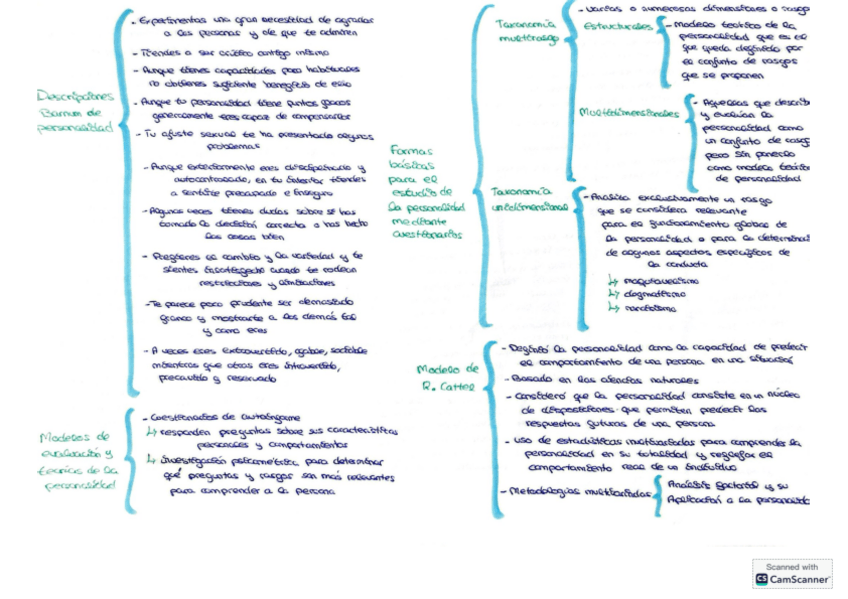 Descripciones
Barnum de
personalidad
- Experimentas una gran necesidad de agradar
a las personas y de que te admiren
- Tiendes a ser crítico contigo mismo
- Aunque tienes capacidades poco habituales
no obtienes suficiente beneficio de ello
- Aunque tu personalidad tiene puntos flacos
generalmente eres capaz de compensarlos
- Tu ajuste sexual te ha presentado algunos
problemas
- Aunque exteriormente eres disciplinado y
autocontrolado, en tu interior tiendes
a sentirte preocupado e inseguro
- Algunas veces tienes dudas sobre si has
tomado la decisión correcta o has hecho
las cosas bien
- Prefieres el cambio y la variedad y te
sientes insatisfecho cuando te rodean
restricciones y limitaciones
- Te parece poco prudente ser demasiado
franco y mostrarte a los demás tal
y como eres
- A veces eres extrovertido, afable, sociable
mientras que otras eres introvertido,
precavido y reservado
Modelos de
evaluación y
teorías de la
personalidad
- Cuestionarios de autoinforme
↳ responden preguntas sobre sus características
personales y comportamientos
↳ investigación psicométrica para determinar
qué preguntas y rasgos son más relevantes
para comprender a la persona
Formas
básicas
para el
estudio de
la personalidad
mediante
cuestionarios
Taxonomía
multirasgo
- Varias o numerosas dimensiones o rasgo
Estructurales
- Modelo teórico de la
personalidad que es el
que queda definido por
el conjunto de rasgos
que se proponen
Multidimensionales
- Aquellas que describ
y evalúan la
personalidad como
un conjunto de rasg
pero sin ponerlo
como modelo teóric
de personalidad
Taxonomía
unidimensional
- Analiza exclusivamente un rasgo
que se considera relevante
para el funcionamiento global de
la personalidad o para la determinac
de algunos aspectos específicos de
la conducta
↳ maquiavelismo
↳ dogmatismo
↳ narcisismo
Modelo de
R. Cattel
- Definió la personalidad como la capacidad de predecir
el comportamiento de una persona en una situación
- Basado en las ciencias naturales
- Consideró que la personalidad consiste en un núcleo
de disposiciones que permiten predecir las
respuestas futuras de una persona
- Uso de estadísticas multivariadas para comprender la
personalidad en su totalidad y reflejar el
comportamiento real de un individuo
- Metodologías multivariadas
Análisis factorial y su
Aplicación a la personalida
Scanned with
CS CamScanner